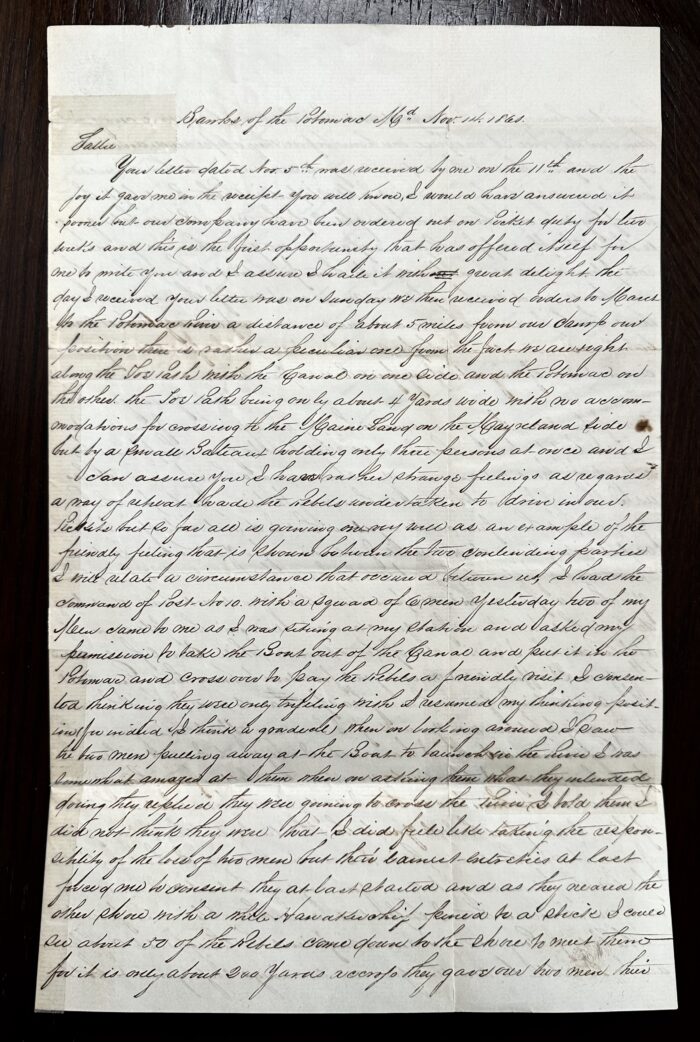 Banks, of the Potomac Md Nov. 14. 1861.
Sallie
Your letter dated Nov. 5th was received by me on the 11th and the
joy it gave me in the receipt you will know, I would have answered it
sooner but our company have been ordered out on Picket duty for two
weeks and this is the first opportunity that has offered itself for
me to write you and I assure I haile it with great delight the
day I received your letter was on Sunday we then received orders to March
to the Potomac River a distance of about 5 miles from our Camp our
position there is rather a peculiar one from the fact we are right
along the Toe Path with the Canal on one side and the Potomac on
the other. the Toe Path being only about 4 Yards wide with no accom-
modations for crossing to the Maine Land on the Mayreland side
but by a small Bateaux holding only three persons at once and I
can assure you I have rather strange feelings as regards
a way of retreat had the Rebels undertaken to drive in our
Pickets but so far all is goining on very well as an example of the
friendly feeling that is shown between the two contending parties
I will relate a circumstance that occured between us, I had the
command of Post No 10. with a squad of 6 men Yesterday two of my
Men came to me as I was siting at my station and asked my
permission to take the Boat out of the Canal and put it in the
Potomac and cross over to pay the Rebels a friendly visit I consen-
ted thinking they were only trifeling with I resumed my thinking posit-
ion (for indeed I think a gradeal) when on looking around I saw
the two men pulling away at the Boat to launch in the River I was
somewhat amazed at them when on asking them what they intended
doing they replied they were goining to cross the River I told them I
did not think they were that I did feile like taking the respon-
sibility of the loss of two men but their earnest entreties at last
forced me to consent they at last started and as they neared the
other shore with a white Handkerchief to a stick I could
see about 50 of the Rebels come down to the shore to meet them
for it is only about 200 Yards accross they gave our two men their